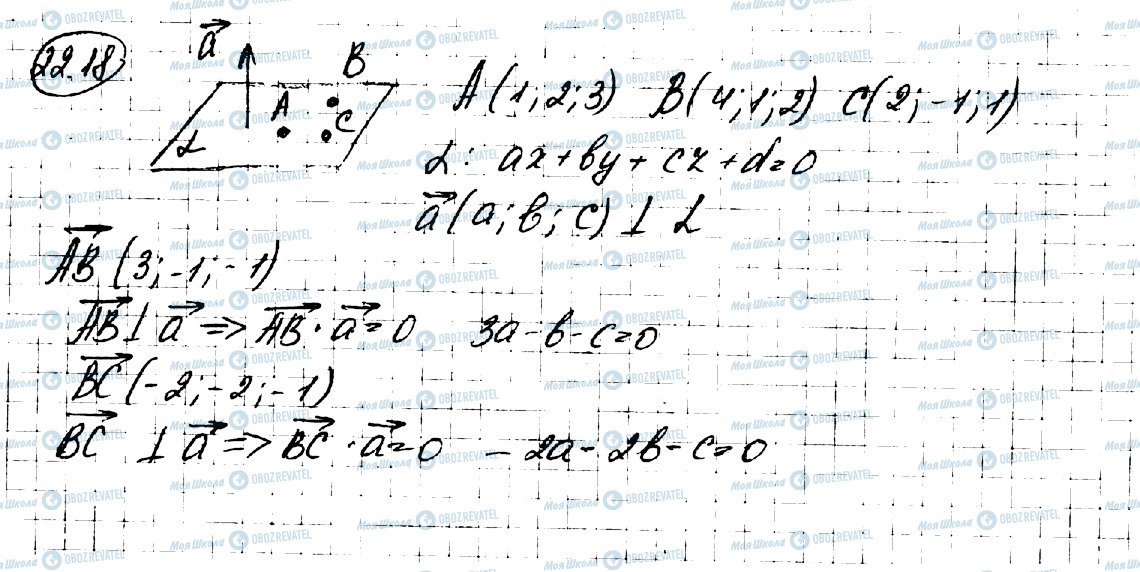 22.18
a⃗
B
A
C
α
A(1;2;3) B(4;1;2) C(2;-1;1)
α: ax+by+cz+d=0
a⃗(a;b;c) ⊥ α
AB⃗ (3;-1;-1)
AB⃗ ⊥ a⃗ => AB⃗ · a⃗ = 0 3a-b-c=0
BC⃗ (-2;-2;-1)
BC⃗ ⊥ a⃗ => BC⃗ · a⃗ = 0 -2a-2b-c=0
Моя Школа OBOZREVATEL